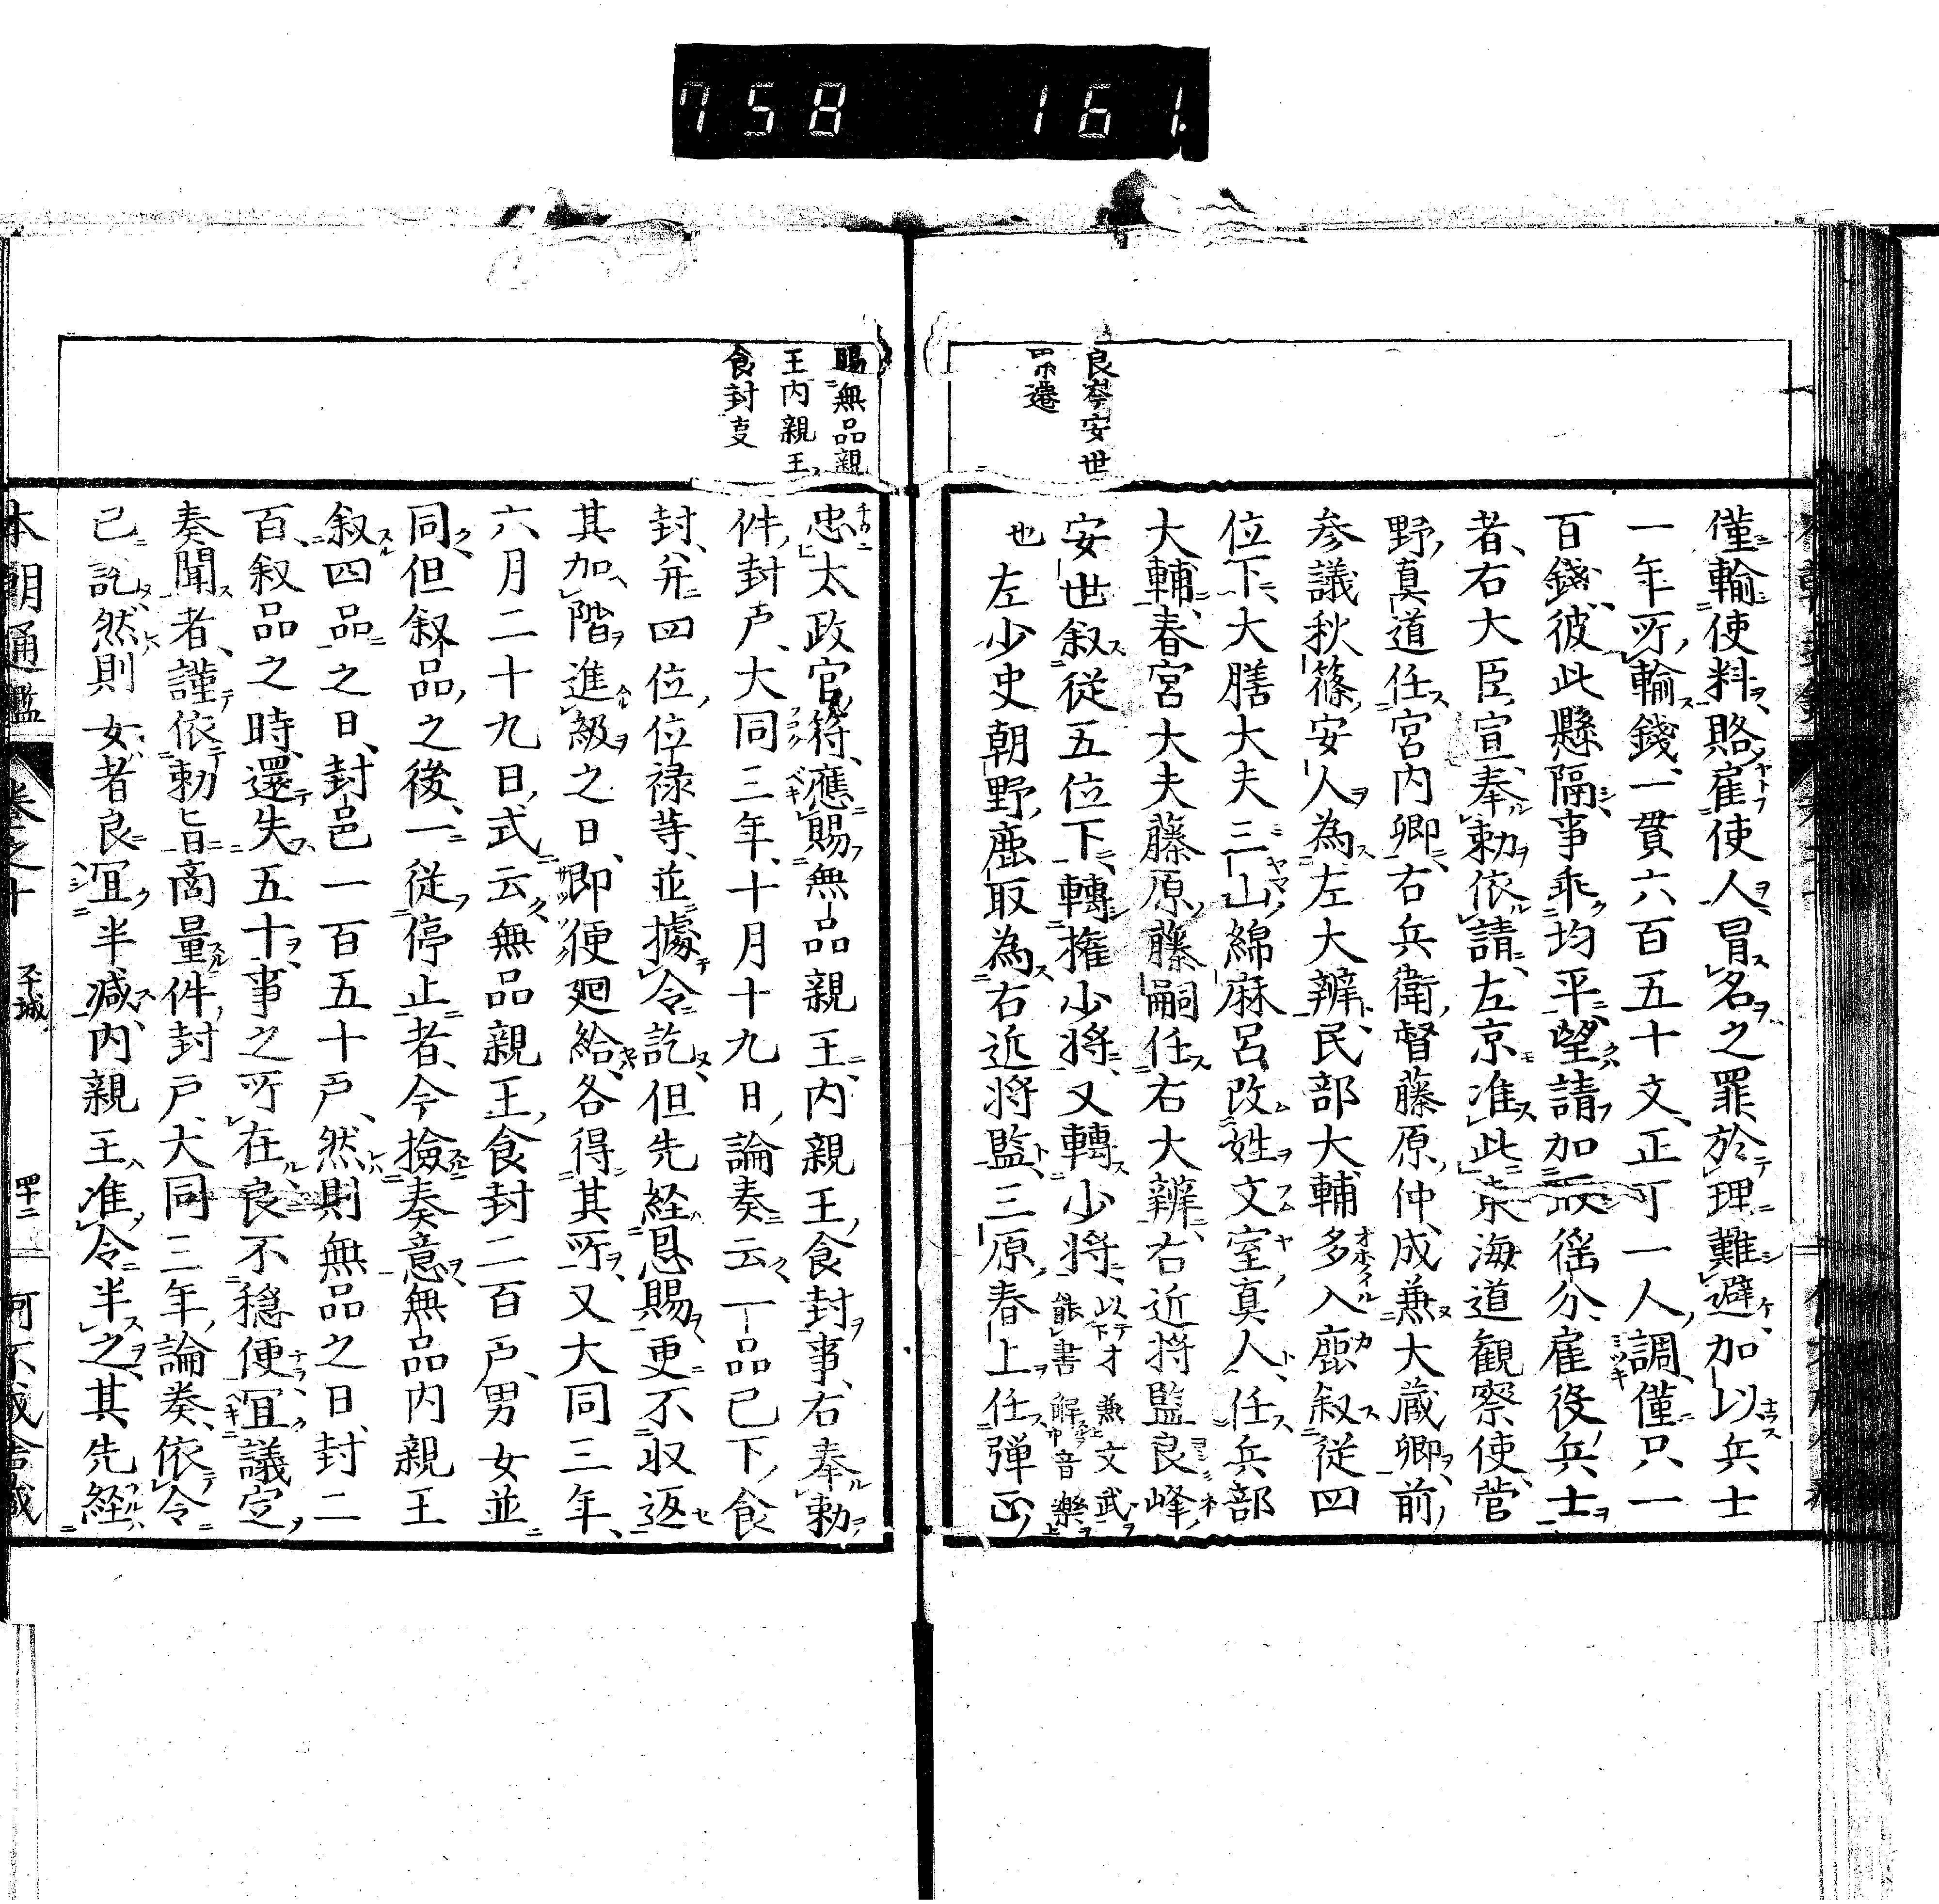 758 161.
良岑安世
昇遷
僅輸使料賂雇使人冒名之罪於理難避加以兵士
一年所輸錢一貫六百五十文正丁一人調僅只一
百錢彼此懸隔事乖均平望請加徭分雇役兵士
者右大臣宣奉勅依請左京准此東海道観察使菅
野真道任宮内卿右兵衛督藤原仲成兼大蔵卿前
参議秋篠安人為左大辨民部大輔多入鹿叙従四
位下大膳大夫三山綿麻呂改姓文室真人任兵部
大輔春宮大夫藤原藤嗣任右大辨右近将監良峰
安世叙従五位下轉権少将又轉少将以下才兼文武能書解音樂
也左少史朝野鹿取為右近将監三原春上任弾正
賜無品親
王内親王
食封叓
忠太政官符應賜無品親王内親王食封事右奉勅
件封戸大同三年十月十九日論奏云一品已下食
封并四位位禄等並據令訖但先経恩賜更不収返
其加階進級之日即便廻給各得其所又大同三年
六月二十九日式云無品親王食封二百戸男女並
同但叙品之後一従停止者今撿奏意無品内親王
叙四品之日封邑一百五十戸然則無品之日封二
百叙品之時還失五十事之所在良不穏便宜議定
奏聞者謹依勅旨商量件封戸大同三年論奏依令
已訖然則女者良宜半減内親王准令半之其先経
本朝通鑑 巻之十 平城 四十二